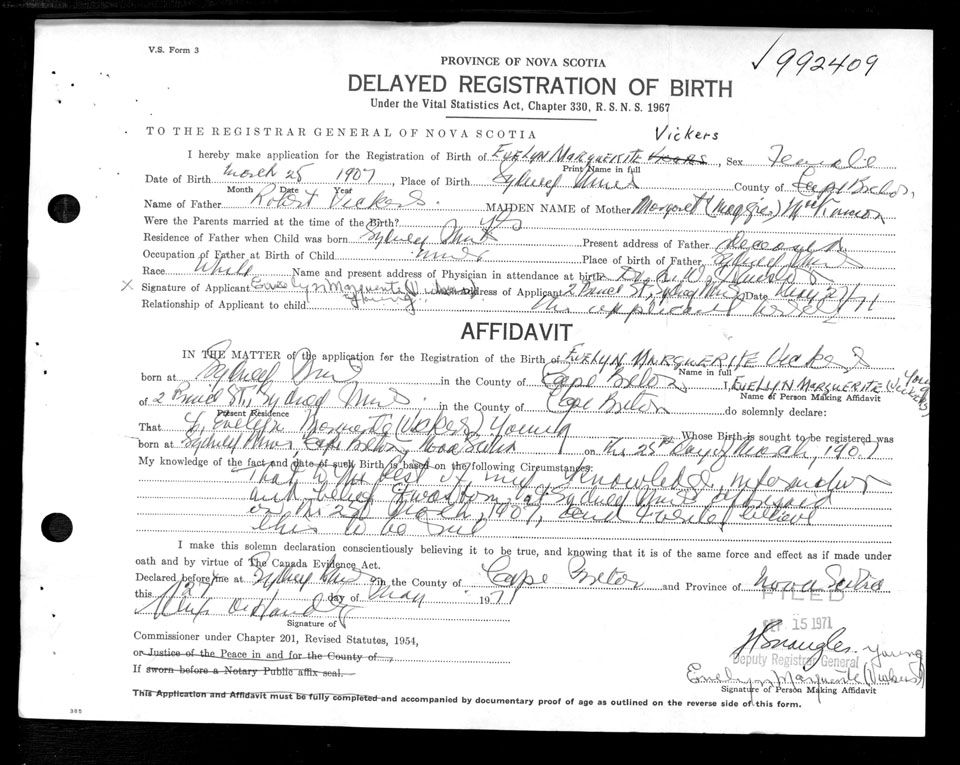 V.S. Form 3
992409
PROVINCE OF NOVA SCOTIA
DELAYED REGISTRATION OF BIRTH
Under the Vital Statistics Act, Chapter 330, R. S. N. S. 1967
Vickers
TO THE REGISTRAR GENERAL OF NOVA SCOTIA
I hereby make application for the Registration of Birth of EVELYN MARGUERITE, Sex Female
Print Name in full
Date of Birth March 25 1907, Place of Birth Sydney Mines County of Cape Breton,
Month Date Year
Name of Father Robert Vickers MAIDEN NAME of Mother Margaret (Maggie)
Were the Parents married at the time of the Birth? Yes
Residence of Father when Child was born Sydney Mines Present address of Father deceased
Occupation of Father at Birth of Child Miner Place of birth of Father Sydney Mines
Race White Name and present address of Physician in attendance at birth Dr.
X Signature of Applicant Evelyn Marguerite Vickers Young Address of Applicant 2 St, Sydney Mines Date May 27/71
Relationship of Applicant to child applicant
AFFIDAVIT
IN THE MATTER of the application for the Registration of Birth of EVELYN MARGUERITE Vickers
Name in full
born at Sydney Mines in the County of Cape Breton I, EVELYN MARGUERITE (Vickers) Young
Name of Person Making Affidavit
of 2 St, Sydney Mines in the County of Cape Breton do solemnly declare:
Present Residence
That I, Evelyn Marguerite (Vickers) Young Whose Birth is sought to be registered was
born at Sydney Mines, Cape Breton, Nova Scotia on the 25th Day of March, 1907
My knowledge of the fact and date of such Birth is based on the following Circumstances:
That to the best of my knowledge, information
and belief I was born at Sydney Mines aforesaid
on the 25th March, 1907, and I verily believe
this to be true
I make this solemn declaration conscientiously believing it to be true, and knowing that it is of the same force and effect as if made under
oath and by virtue of The Canada Evidence Act.
Declared before me at Sydney Mines in the County of Cape Breton and Province of Nova Scotia
this 27 day of May 1971
FILED
SEP 15 1971
Signature of
Commissioner under Chapter 201, Revised Statutes, 1954,
or Justice of the Peace in and for the County of
Deputy Registrar General
If sworn before a Notary Public affix seal.
Young
Evelyn Marguerite (Vickers)
Signature of Person Making Affidavit
This Application and Affidavit must be fully completed and accompanied by documentary proof of age as outlined on the reverse side of this form.
385